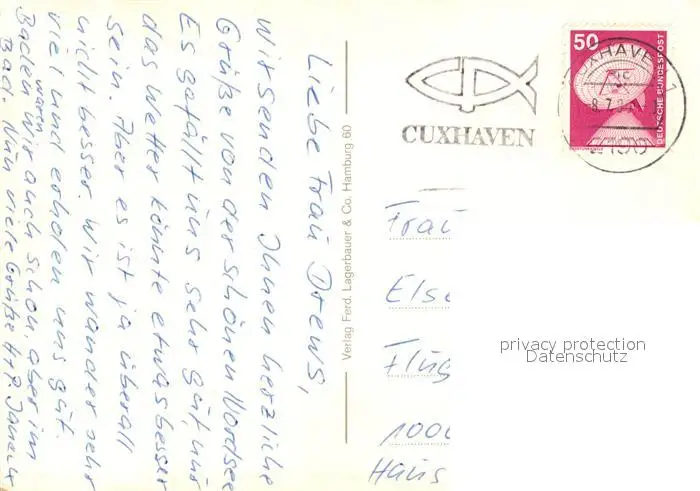 Liebe Frau Drews,
wir senden Ihnen herzliche
Grüße von der schönen Nordsee
Es gefällt uns sehr gut, nur
das Wetter könnte etwas besser
sein. Aber es ist ja überall
nicht besser. Wir wandern sehr
viel und erholen uns gut.
Baden waren wir auch schon, aber im
Bad. Nun viele Grüße H+P.
Verlag Ferd. Lagerbauer & Co. Hamburg 60
CUXHAVEN
50
DEUTSCHE BUNDESPOST
CUXHAVEN 1
2190
Frau
Else
Flug
1000
Haus
privacy protection
Datenschutz